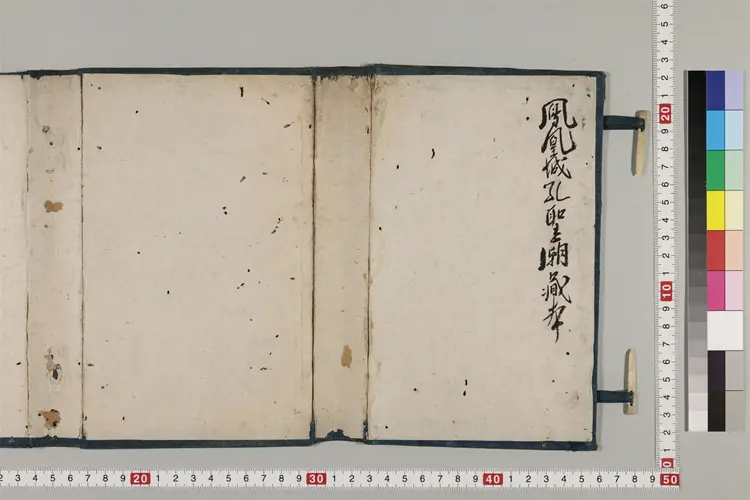 鳳凰城孔聖廟藏本
6
5
4
3
2
1
20
9
8
7
6
5
4
3
2
1
10
9
8
7
6
5
4
3
2
1
0
2 3 4 5 6 7 8 9 20 1 2 3 4 5 6 7 8 9 30 1 2 3 4 5 6 7 8 9 40 1 2 3 4 5 6 7 8 9 50